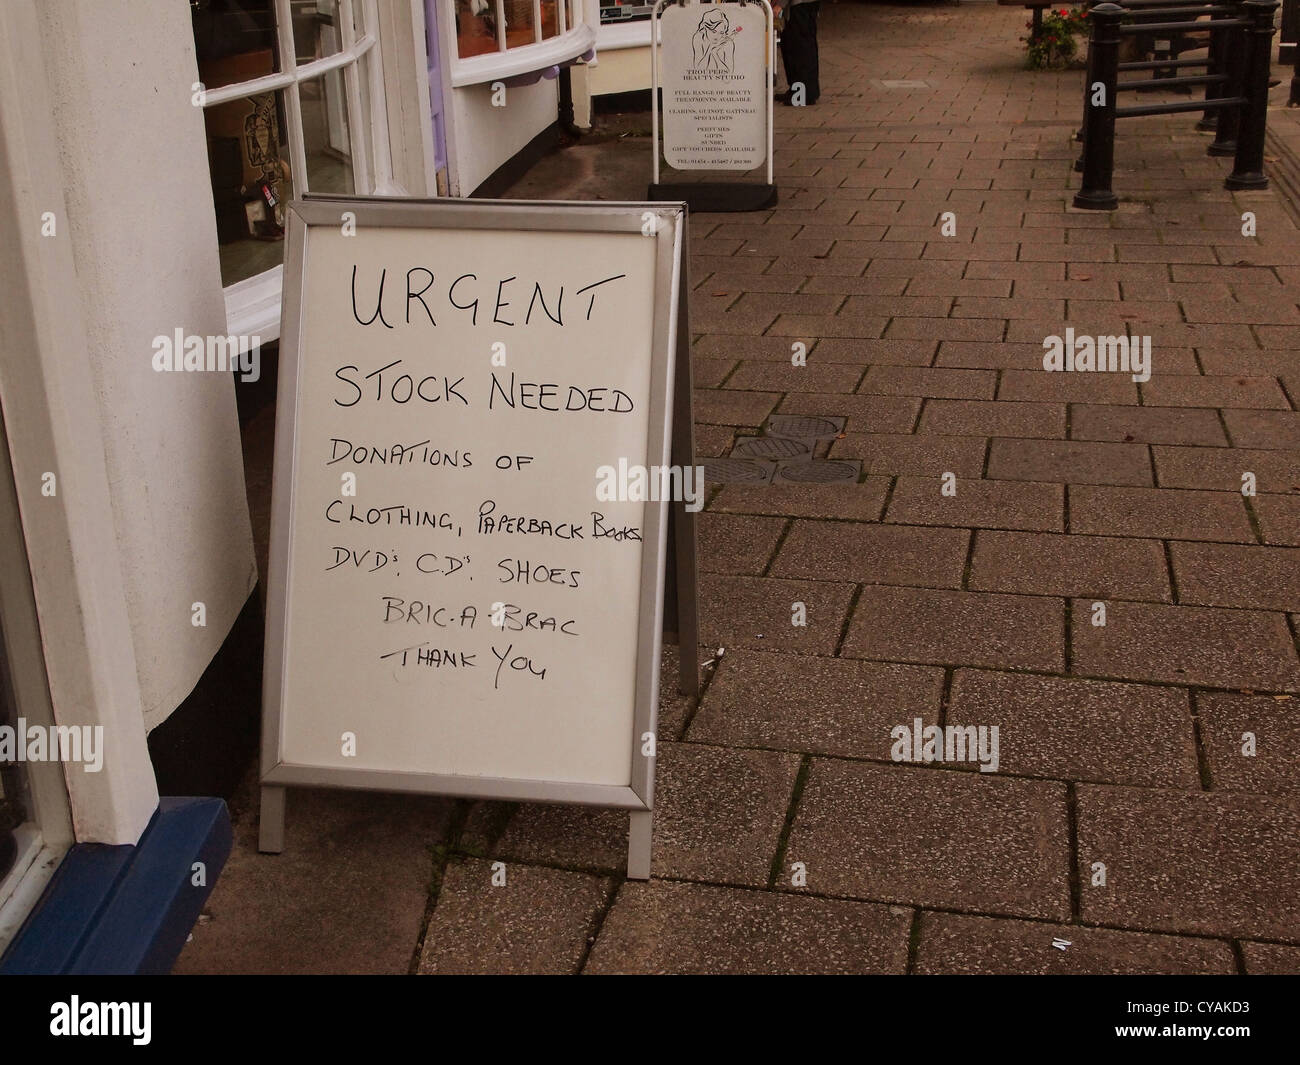 TROUPERS'
BEAUTY STUDIO
FULL RANGE OF BEAUTY
TREATMENTS AVAILABLE
CLARINS, GUINOT, GATINEAU
SPECIALISTS
PERFUMES
GIFTS
SUNBED
GIFT VOUCHERS AVAILABLE
URGENT
STOCK NEEDED
DONATIONS OF
CLOTHING, PAPERBACK BOOKS,
DVD's, C.D's, SHOES
BRIC-A-BRAC
THANK YOU
alamy
alamy
alamy
alamy
alamy
alamy stock photo
Image ID: CYAKD3
www.alamy.com